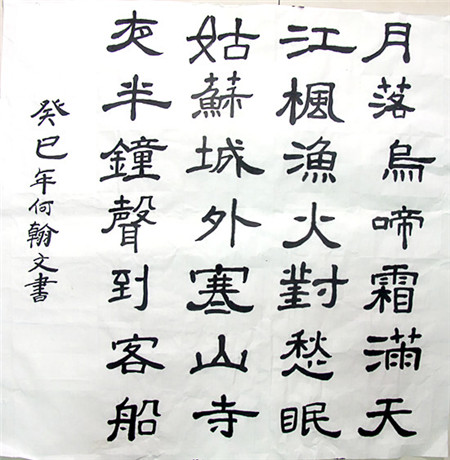 月落烏啼霜滿天
江楓漁火對愁眠
姑蘇城外塞山寺
夜半鐘聲到客船
癸巳年何翰文書